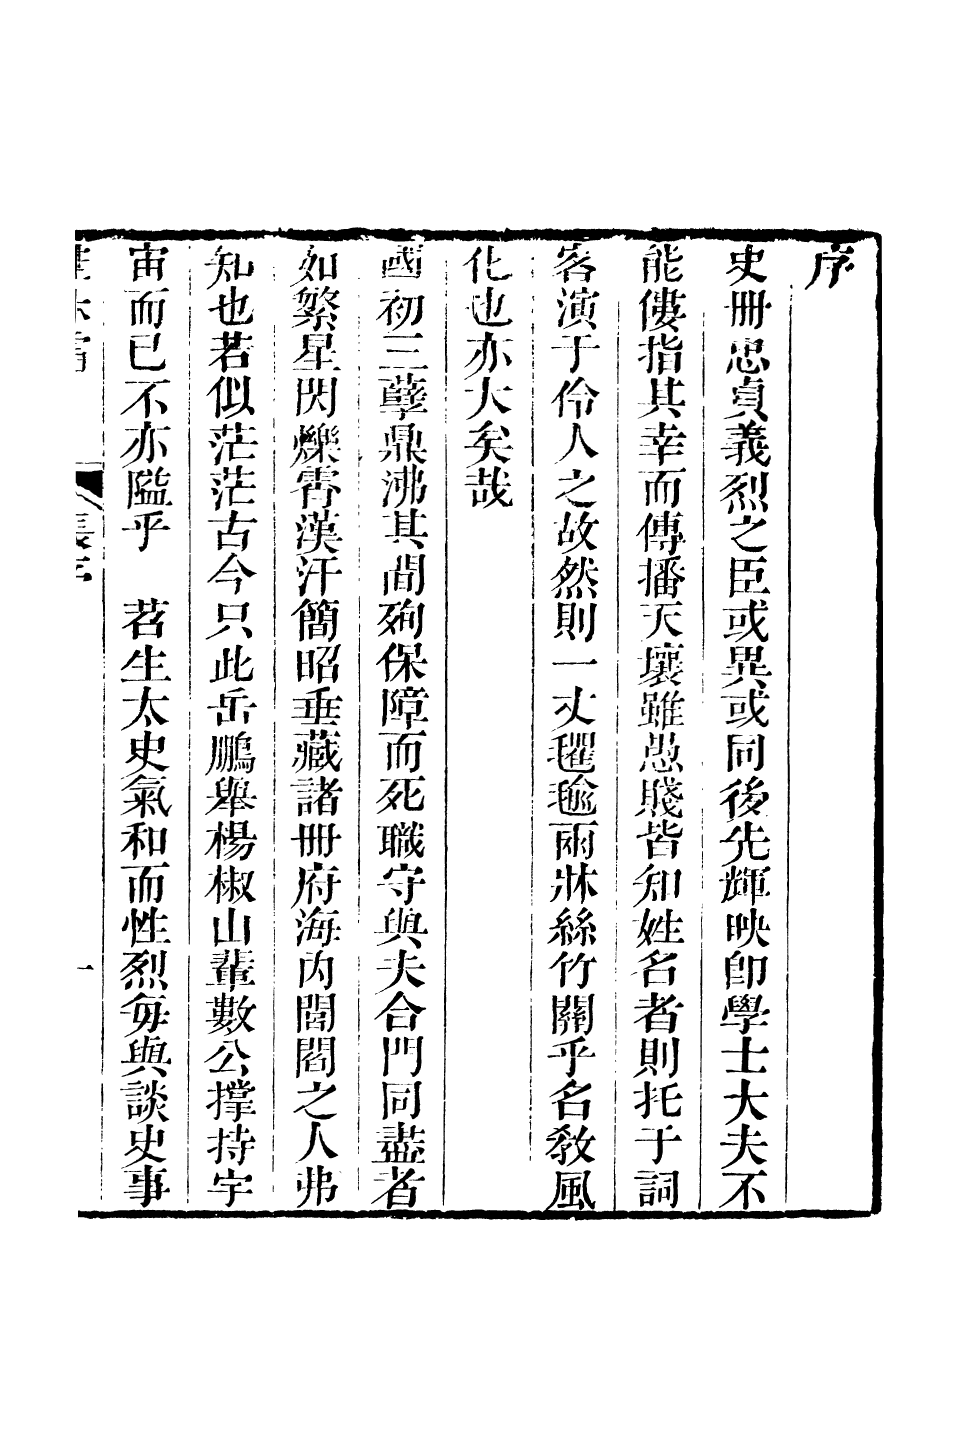 序
史冊忠貞義烈之臣或異或同後先輝映卽學士大夫不
能僂指其幸而傳播天壤雖愚賤皆知姓名者則托于詞
客演于伶人之故然則一丈氍毹兩牀絲竹關乎名教風
化也亦大矣哉
國初三孽鼎沸其間殉保障而死職守與夫合門同盡者
如繁星閃爍霄漢汗簡昭垂藏諸冊府海內閭閻之人弗
知也若似茫茫古今只此岳鵬舉楊椒山輩數公撐持宇
宙而已不亦隘乎　苕生太史氣和而性烈每與談史事
一